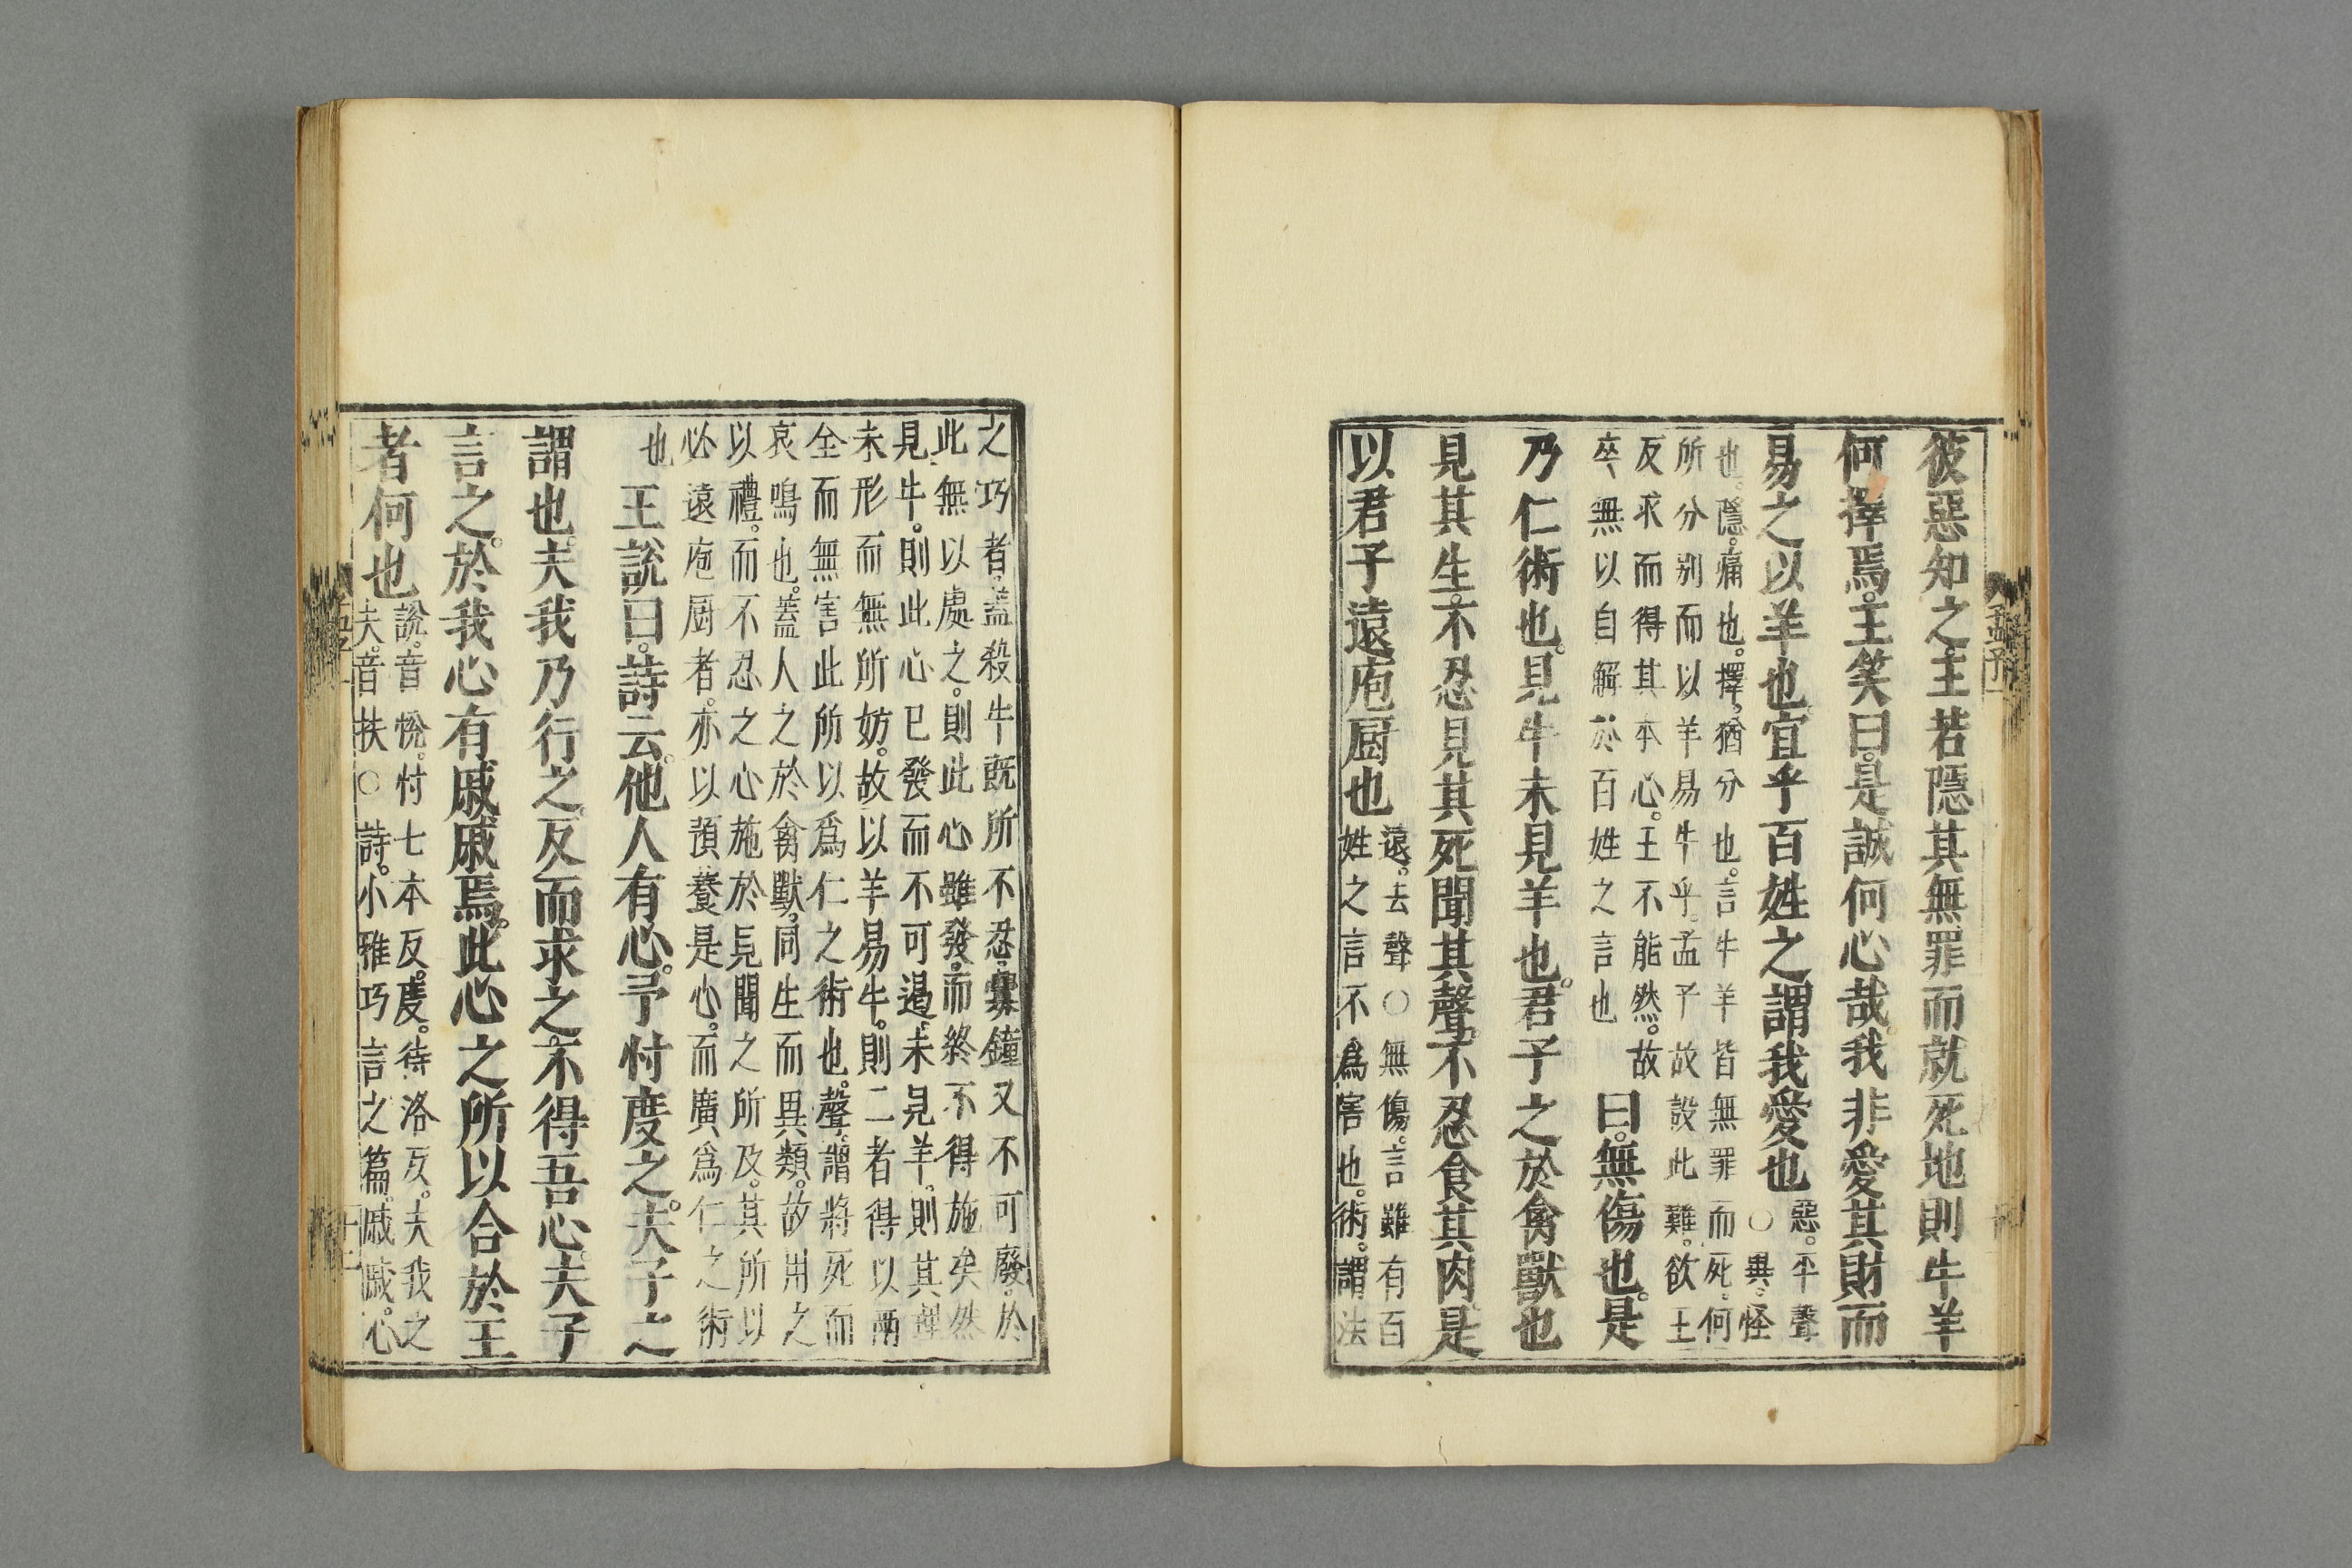 彼惡知之。王若隱其無罪而就死地則牛羊
何擇焉。王笑曰。是誠何心哉。我非愛其財而
易之以羊也宜乎百姓之謂我愛也
惡。平聲
○異。怪
也。隱。痛也。擇。猶分也。言牛羊皆無罪而死。何
所分別而以羊易牛乎。孟子故設此難。欲王
反求而得其本心。王不能然。故
卒無以自解於百姓之言也
曰。無傷也。是
乃仁術也。見牛未見羊也。君子之於禽獸也
見其生。不忍見其死聞其聲。不忍食其肉。是
以君子遠庖厨也
遠。去聲○無傷。言雖有百
姓之言不爲害也。術。謂法
之巧者。蓋殺牛既所不忍。釁鐘又不可廢。於
此無以處之。則此心雖發。而終不得施矣然
見牛。則此心已發而不可遏。未見羊。則其理
未形而無所妨。故以羊易牛。則二者得以兩
全而無害此所以爲仁之術也。聲。謂將死而
哀鳴也。蓋人之於禽獸。同生而異類。故用之
以禮。而不忍之心施於見聞之所及。其所以
必遠庖厨者。亦以預養是心。而廣爲仁之術
也
王說曰。詩云。他人有心。予忖度之。夫子之
謂也。夫我乃行之。反而求之。不得吾心。夫子
言之。於我心有戚戚焉。此心之所以合於王
者何也
說。音悅。忖七本反。度。待洛反。夫我之
夫。音扶○詩。小雅巧言之篇。戚戚。心
孟子一
十二